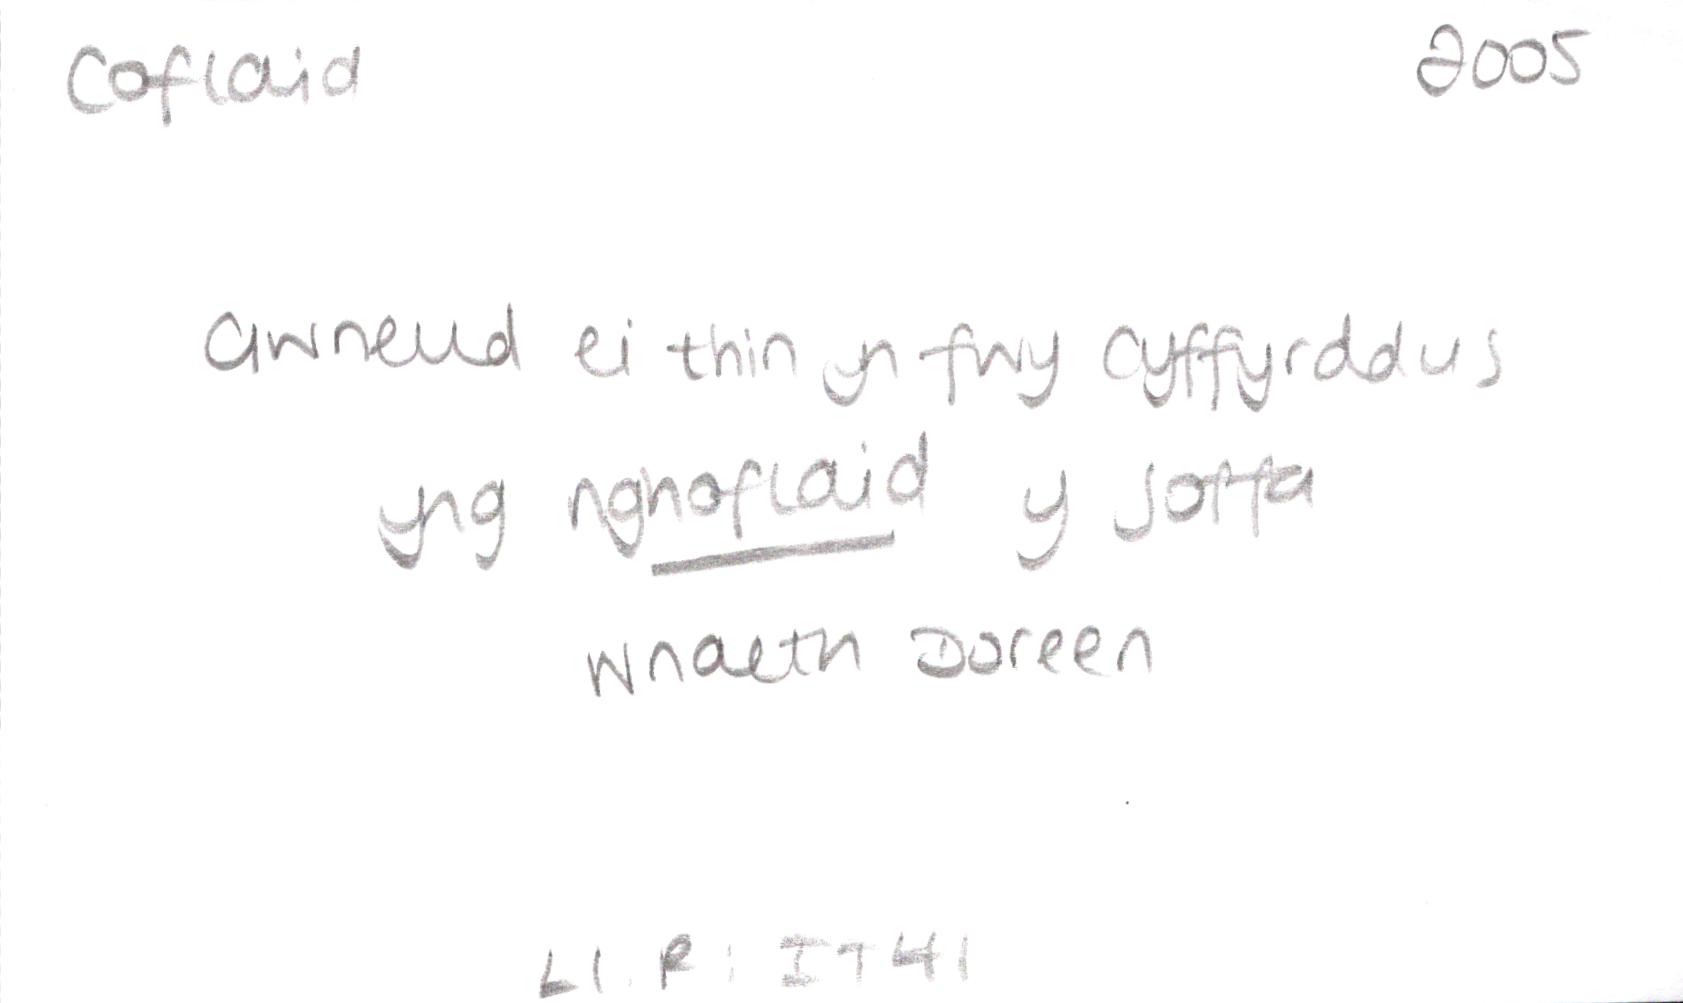 Coflaid 2005
Gwneud ei thin yn fwy cyffyrddus
yng nghoflaid y soffa
wnaeth Doreen
Ll. R: IT41